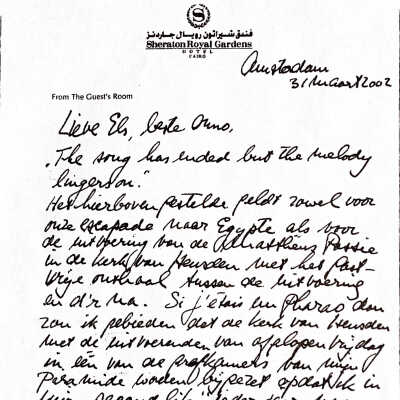 فندق شيراتون رويال جاردنز
Sheraton Royal Gardens
HOTEL
CAIRO
Amsterdam
31 maart 2002
From The Guest's Room
Lieve Els, beste Onno,
„The song has ended but the melody
lingers on."
Het hierboven gestelde geldt zowel voor
onze escapade naar Egypte als voor
de uitvoering van de Mattheüs Passie
in de kerk van Heusden met het gast-
vrije onthaal tussen de uitvoering
en d'r na. Si j'étais un Pharao dan
zou ik gebieden dat de kerk van Heusden
met de uitvoerenden van afgelopen vrijdag
in één van de grafkamers van mijn
Piramide worden bijgezet opdat ik in